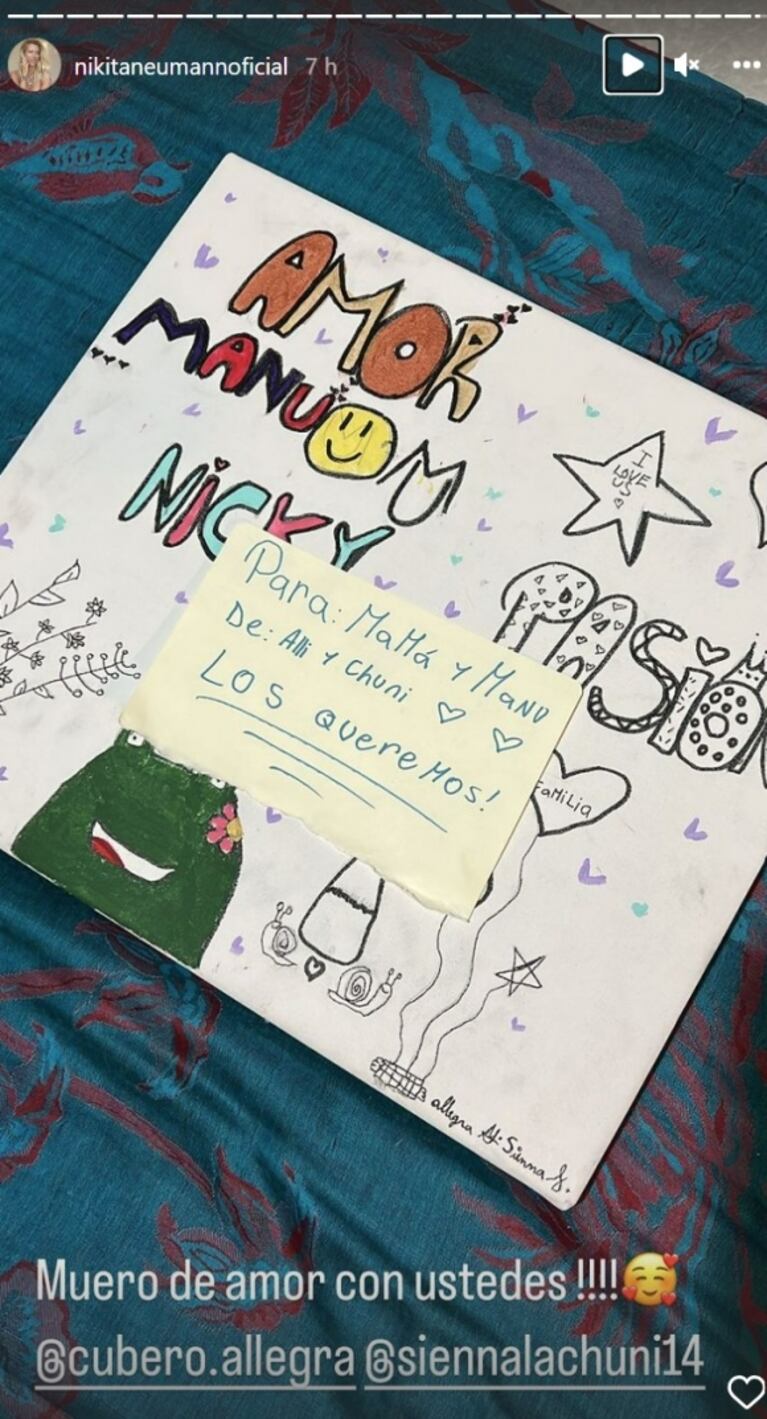 nikitaneumannoficial 7 h
AMOR
MANU
NICKY
I
LOVE
US
PASIÓN
Para: MaMá y Manu
De: Alli y Chuni
LOS QuereMos!
FaMiLia
allegra
Sienna
Muero de amor con ustedes !!!!🥰
@cubero.allegra @siennalachuni14